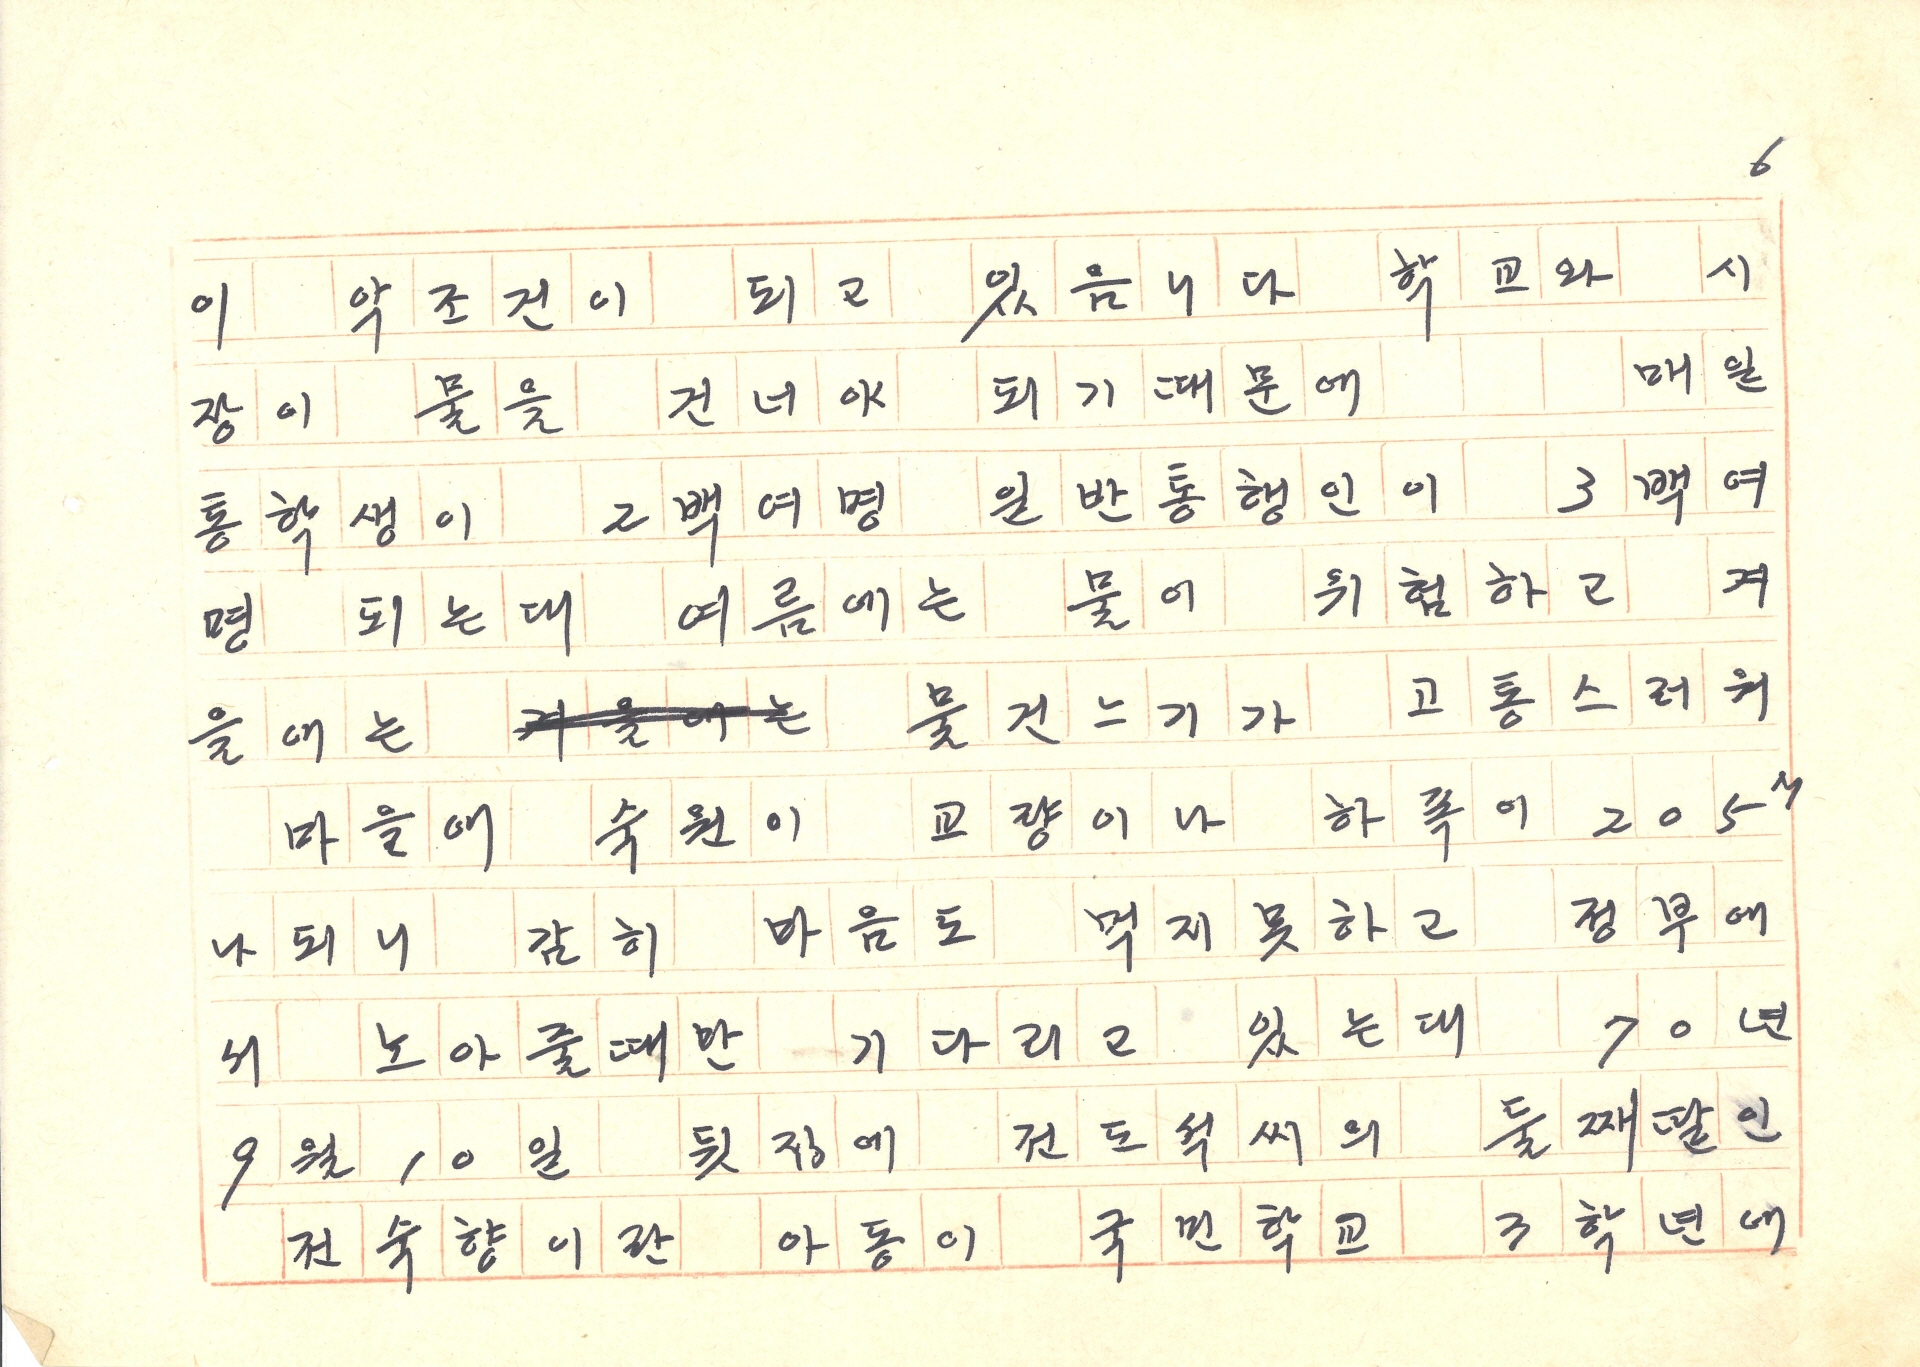 6
이 악조건이 되고 있음니다 학교와 시
장이 물을 건너야 되기때문에 매일
통학생이 2백여명 일반통행인이 3백여
명 되는대 여름에는 물이 위험하고 겨
을에는 겨을에는 물건느기가 고통스러워
마을에 숙원이 교량이나 하폭이 205M
나되니 감히 마음도 먹지못하고 정부에
서 노아줄때만 기다리고 있는대 70년
9월 10일 뒷장에 전도석씨의 둘째딸인
전숙향이란 아동이 국민학교 3학년에